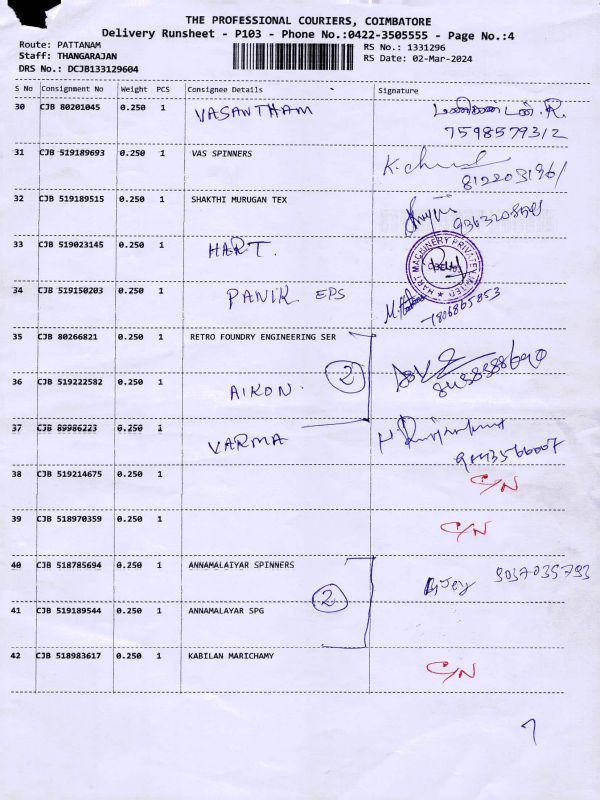 THE PROFESSIONAL COURIERS, COIMBATORE
Delivery Runsheet - P103 - Phone No.:0422-3505555 - Page No.:4
Route: PATTANAM
RS No.: 1331296
Staff: THANGARAJAN
RS Date: 02-Mar-2024
DRS No.: DCJB133129604
S No Consignment No Weight PCS Consignee Details Signature
30 CJB 80201045 0.250 1 VASANTHAM மணிகண்டன்.R
7598579312
31 CJB 519189693 0.250 1 VAS SPINNERS
32 CJB 519189515 0.250 1 SHAKTHI MURUGAN TEX
33 CJB 519023145 0.250 1 HART.
HART MACHINERY PRIVATE LIMITED
34 CJB 519150203 0.250 1 PANIK EPS
7806865853
35 CJB 80266821 0.250 1 RETRO FOUNDRY ENGINEERING SER
2
36 CJB 519222582 0.250 1 AIKON.
37 CJB 89986223 0.250 1 VARMA
38 CJB 519214675 0.250 1 C/N
39 CJB 518970359 0.250 1 C/N
40 CJB 518785694 0.250 1 ANNAMALAIYAR SPINNERS
2
41 CJB 519189544 0.250 1 ANNAMALAYAR SPG
42 CJB 518983617 0.250 1 KABILAN MARICHAMY C/N